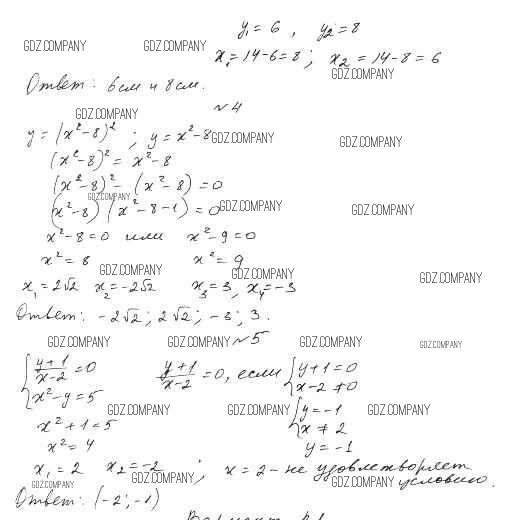 y₁ = 6 , y₂ = 8
GDZ.COMPANY GDZ.COMPANY x₁ = 14-6 = 8 ; x₂ = 14-8 = 6
GDZ.COMPANY
Ответ: 6 см и 8 см.
GDZ.COMPANY №4
y = (x²-8)² ; y = x²-8 GDZ.COMPANY GDZ.COMPANY
(x²-8)² = x²-8
(x²-8)² - (x²-8) = 0
GDZ.COMPANY
(x²-8) (x²-8-1) = 0 GDZ.COMPANY GDZ.COMPANY
x²-8=0 или x²-9=0
x² = 8 x² = 9
GDZ.COMPANY GDZ.COMPANY GDZ.COMPANY
x₁ = 2√2 x₂ = -2√2 x₃ = 3, x₄ = -3
Ответ: -2√2; 2√2; -3; 3.
GDZ.COMPANY GDZ.COMPANY №5 GDZ.COMPANY GDZ.COMPANY
{ (y+1)/(x-2) = 0 (y+1)/(x-2) = 0, если { y+1=0
{ x²-y=5 { x-2≠0
GDZ.COMPANY GDZ.COMPANY { y=-1 GDZ.COMPANY
x²+1=5 { x≠2
x²=4 y=-1
x₁=2 x₂=-2 ; x=2 - не удовлетворяет
GDZ.COMPANY GDZ.COMPANY GDZ.COMPANY условию.
Ответ: (-2; -1)